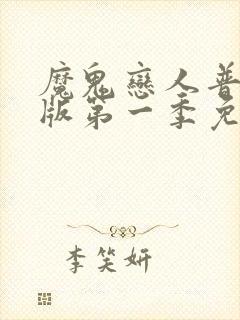 魔鬼戀人普
版第一季免
李笑妍